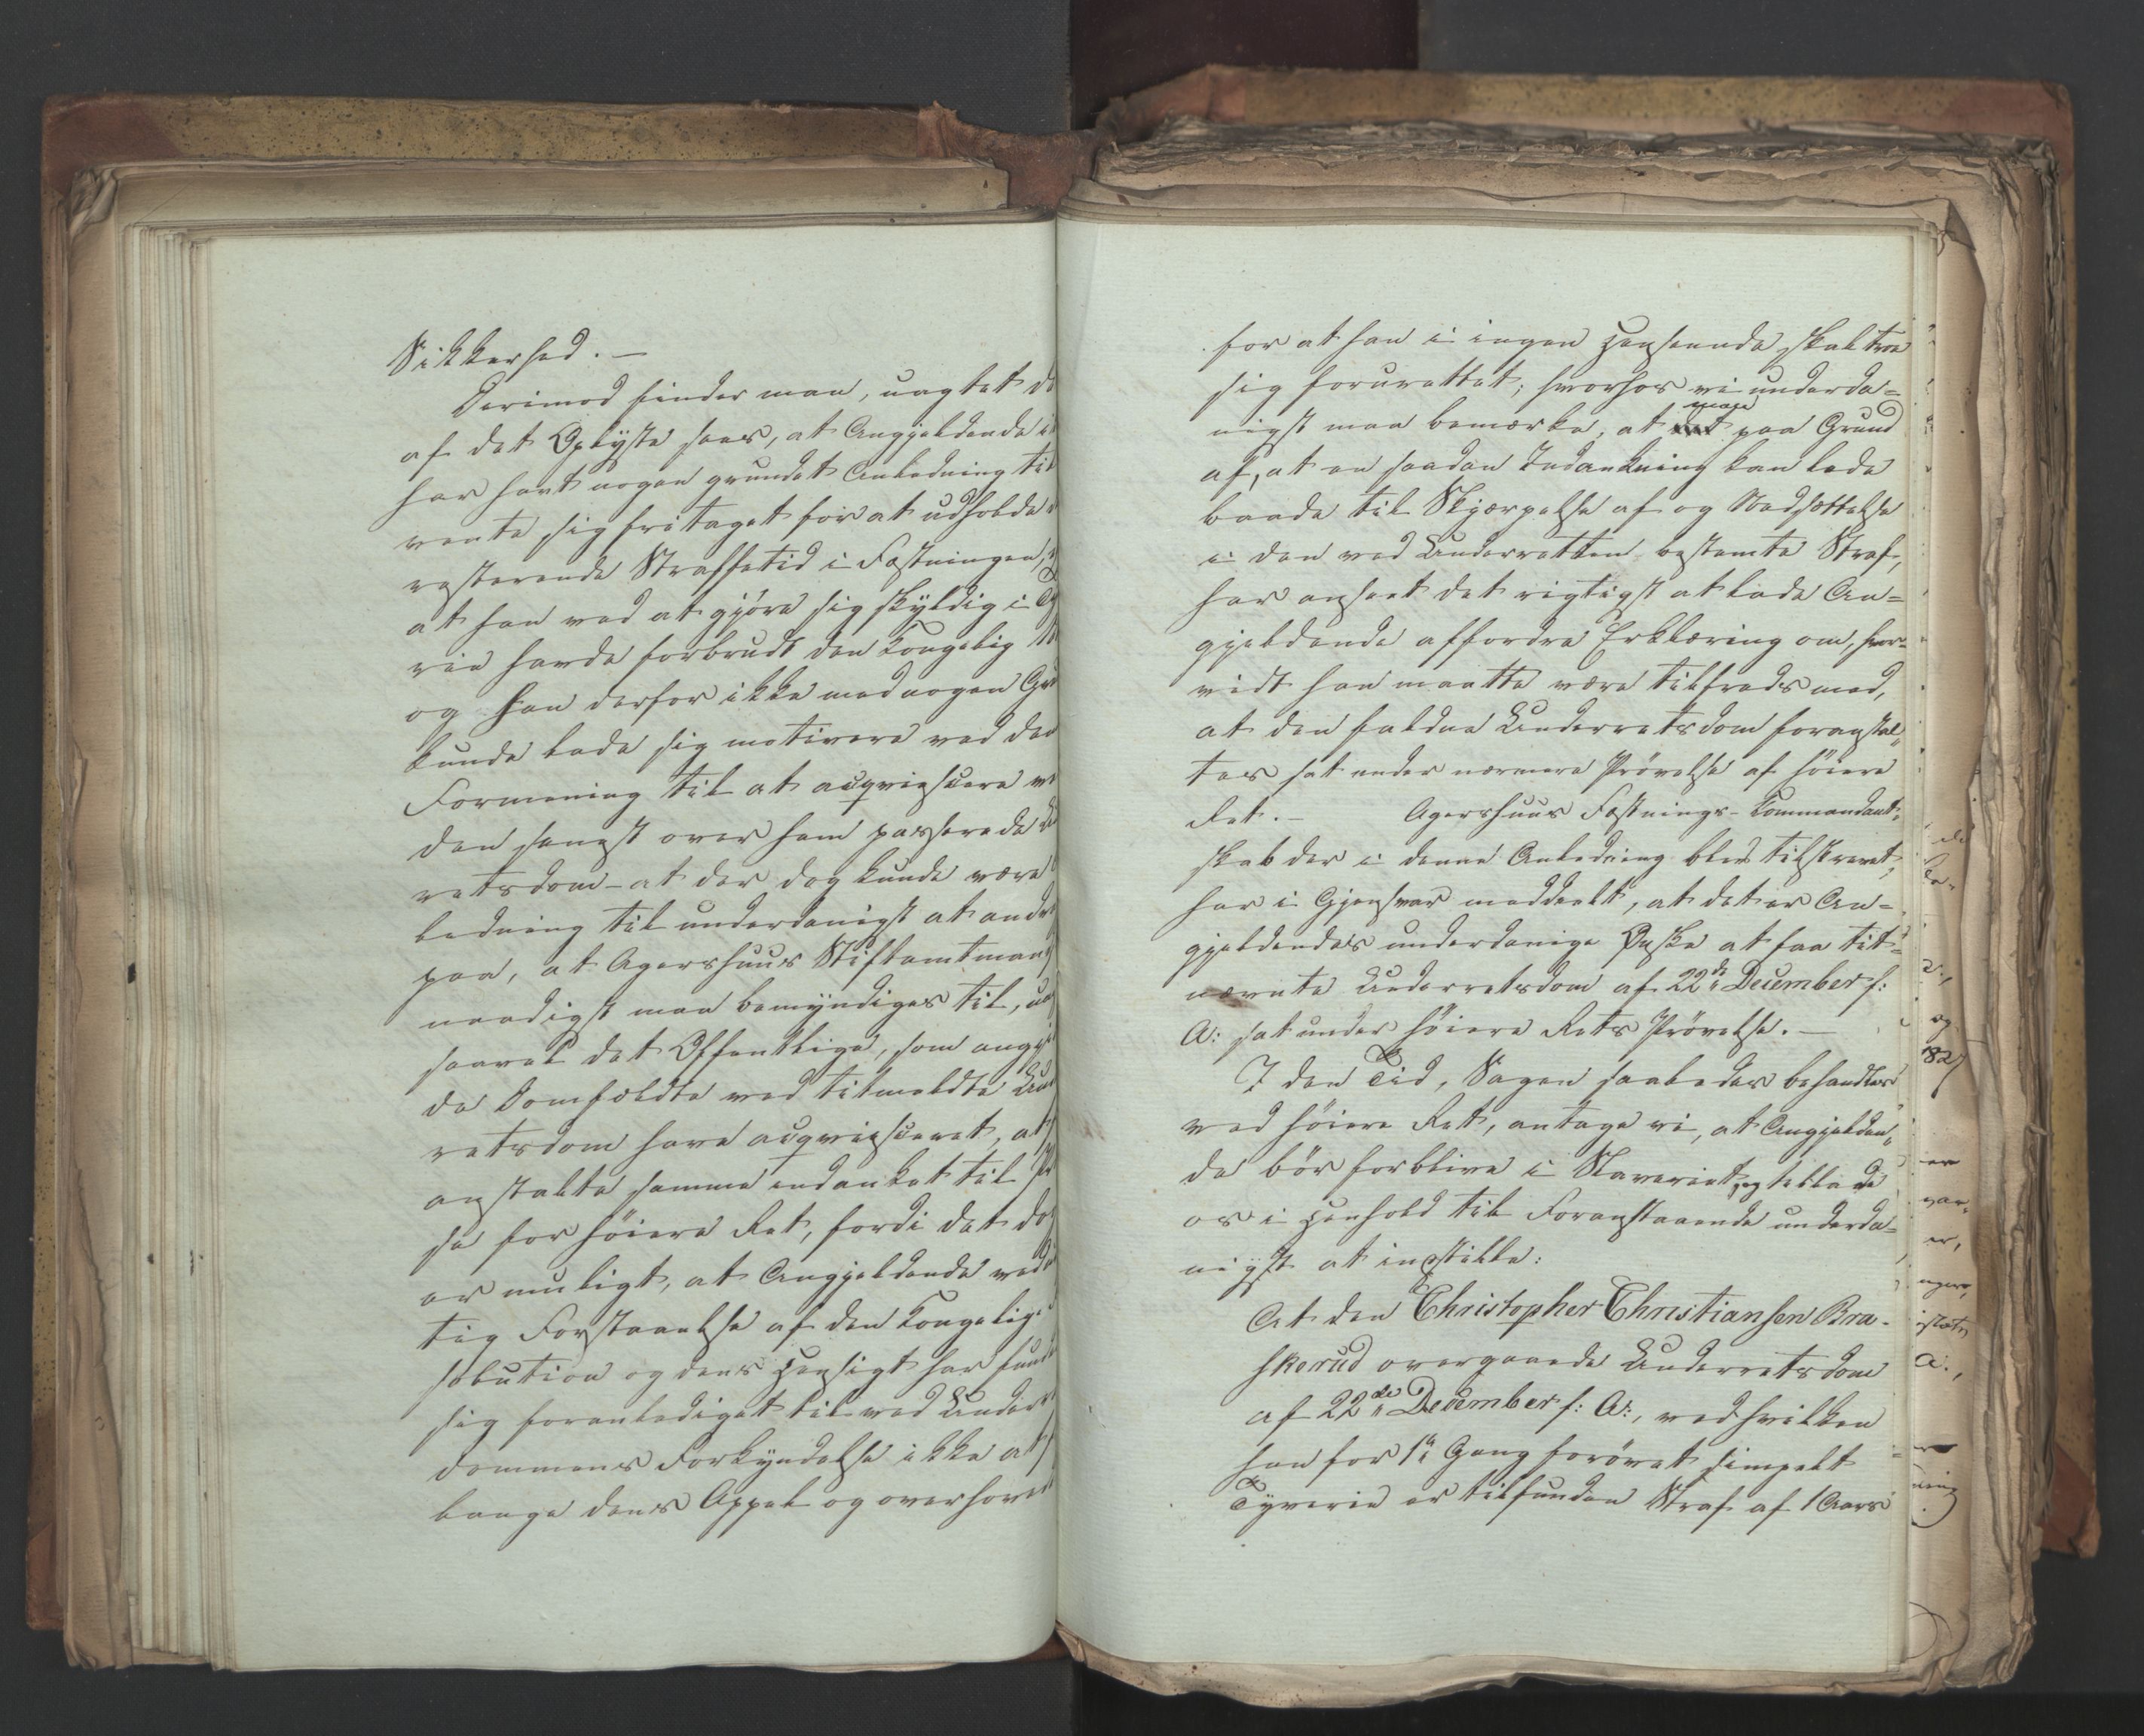 Sikkerhed. —
Derimod finder man, uagtet d
af det Oplyste sees, at Angjeldende i
har havt nogen grundet Anledning til
vente sig fritaget for at udholde
resterende Straffetid i Fæstningen,
at han ved at gjöre sig skyldig i Ty
rie havde forbrudt den Kongelig
og han derfor ikke med nogen Gru
kunde lade sig motivere ved den
Formening til at acqviescere v
den senest over ham passerede
retsdom – at der dog kunde være
ledning til underdanigst at andr
paa, at Agershuus Stiftamtmand
naadigst maa bemyndiges til, ua
saavel det Offentlige, som angj
de Domfældte ved titmeldte Und
retsdom have acqviesceret, at
anstalte samme indanket til Pr
se for höiere Ret, fordi det do
er muligt, at Angjeldende ved
tig Forstaaelse af den Kongelig
solution og dens Hensigt har fund
sig foranlediget til ved Under
dommens Forkyndelse ikke at
lange dens Appel og overhoved
for at han i ingen Henseende skal troe
sig forurettet; hvorhos vi underda=
nigst maa bemærke, at man paa Grund
af, at en saadan Indankning kan lede
baade til Skjærpelse af og Nedsættelse
i den ved Underretten bestemte Straf,
har anseet det rigtigst at lade An=
gjeldende affordre Erklæring om, hvor=
vidt han maatte være tilfreds med,
at den faldne Underretsdom foranstal=
tes sat under nærmere Prövelse af höiere
Ret. – Agershuus Fæstnings-Commandant=
skab der i denne Anledning blev tilskrevet,
har i Gjensvar meddeelt, at det er An=
gjeldendes underdanige Önske at faa tit=
nævnte Underretsdom af 22de December f:
A: sat under höiere Rets Prövelse. —
I den Tid, Sagen saaledes behandles
ved höiere Ret, antage vi, at Angjelden=
de bör forblive i Slaveriet, og tillade
os i Henhold til Foranstaaende underda=
nigst at indstille:
At den Christopher Christiansen Bra-
skerud overgaaede Underretsdom
af 22de December f: A:, ved hvilken
han for 1ste Gang forövet simpelt
Tyverie er tilfunden Straf af 1 Aars